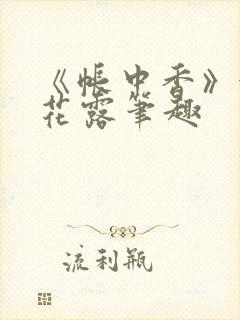 《帐中香》
花露笔趣
流利瓶